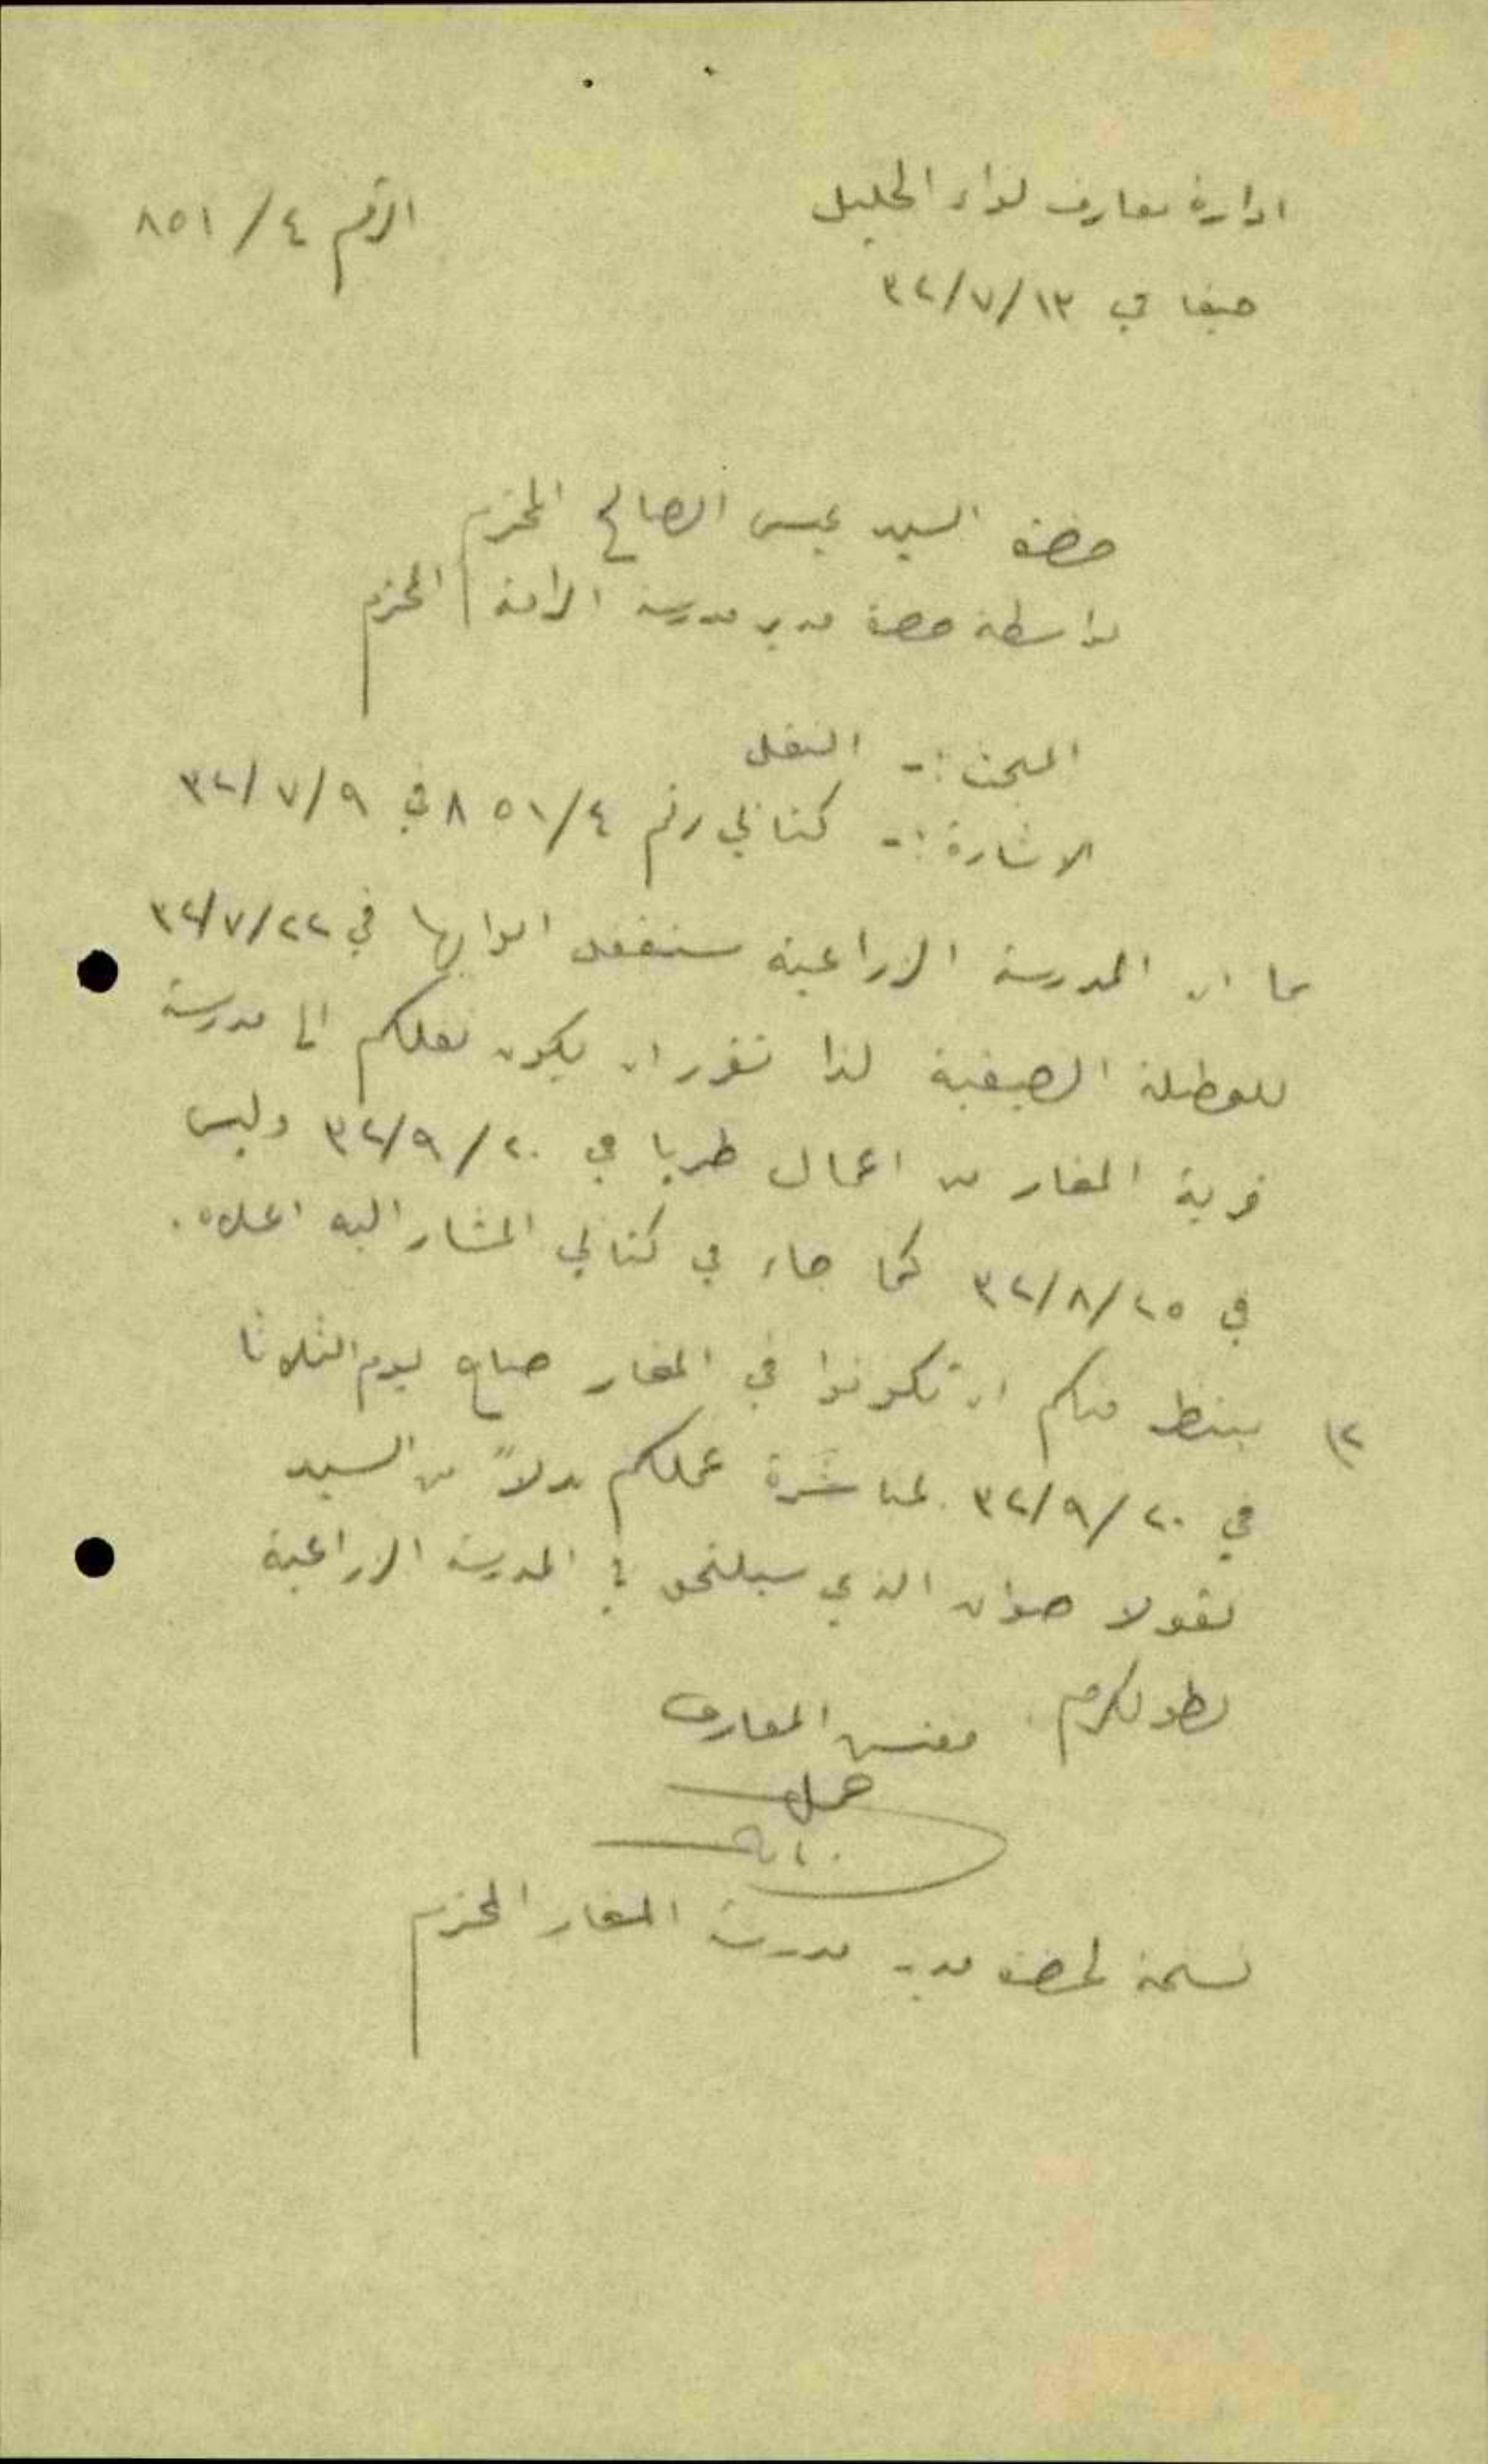 ادارة معارف لواء الجليل
الرقم ٤/ ٨٥١
حيفا في ٣٢/٧/١٣
حضرة السيد عيسى الصالح المحترم
بواسطة حضرة مدير مدرسة الرامة المحترم
المبحث :- النقل
الاشارة :- كتابي رقم ٨٥١/٤ في ٣٢/٧/٩
بما ان المدرسة الزراعية ستقفل ابوابها في ٣٢/٧/٢٢
للعطلة الصيفية لذا تقرر ان يكون نقلكم الى مدرسة
قرية المغار من اعمال طبريا في ٣٢/٩/٢٠ وليس
في ٣٢/٨/٢٥ كما جاء في كتابي المشار اليه اعلاه.
٢) ينتظر منكم ان تكونوا في المغار صباح يوم الثلاثا
في ٣٢/٩/٢٠ لمباشرة عملكم بدلاً من السيد
نقولا الذي سيلتحق في المدرسة الزراعية
بطولكرم. مفتش المعارف
نسخة لحضرة مدير مدرسة المغار المحترم